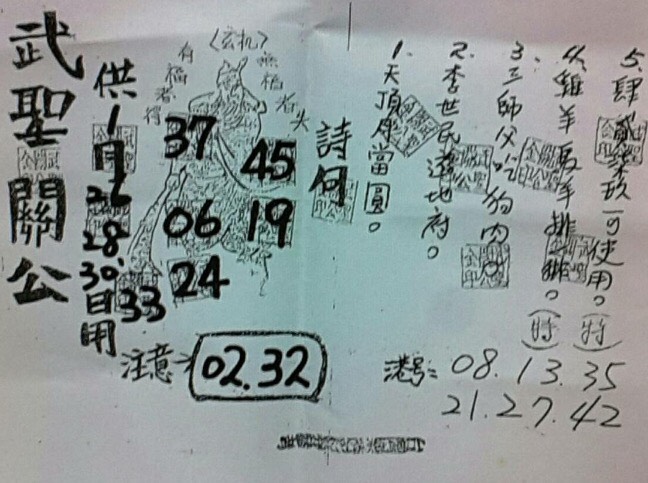 武聖關公
供1月26.28.30.日用
〈玄机〉
有福者得
無福者失
37
45
06
19
24
33
注意> 02.32
詩句
1.天頂座當圓。
2.李世民遊地府。
3.三師父吃狗肉。
4.雞羊取羊排
。(特)
5.肆貳柒玖可使用。(特)
港号: 08.13.35
21.27.42